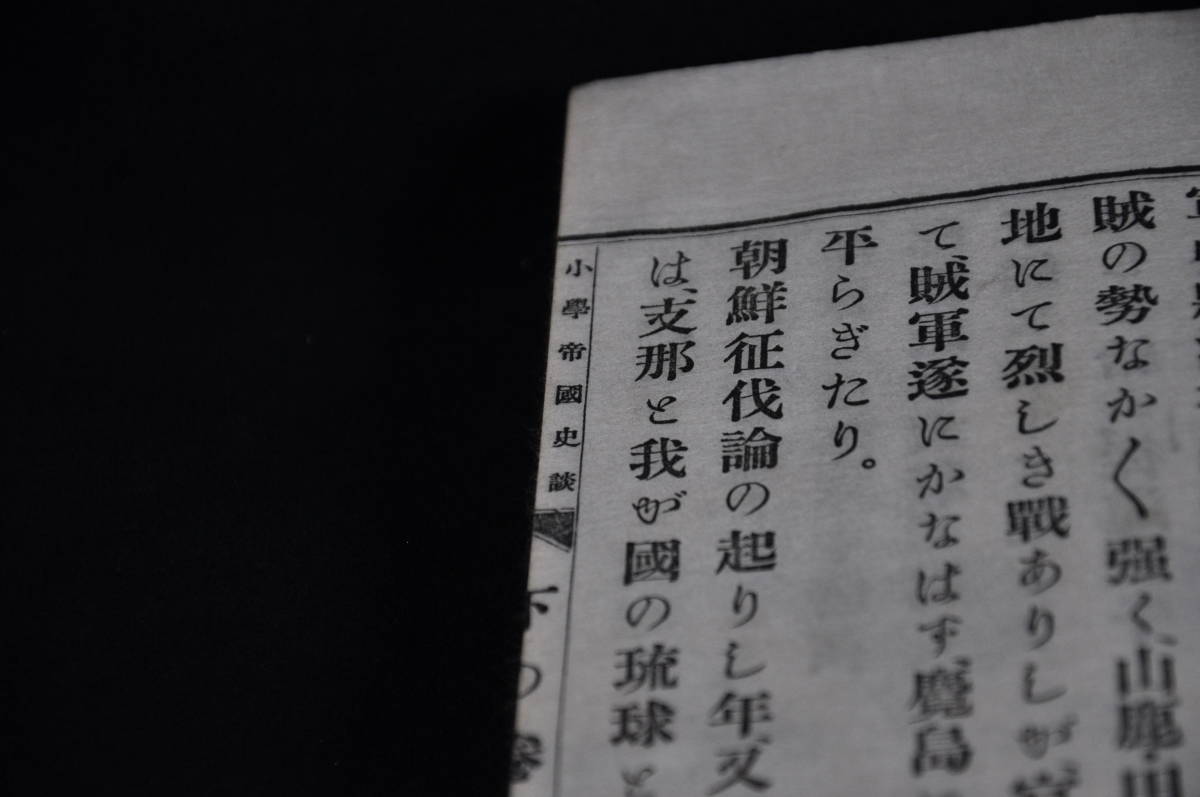 賊の勢なか〱强く、山鹿・田
地にて烈しき戰ありしが、官
て、賊軍遂にかなはず、鹿島
平らぎたり。
朝鮮征伐論の起りし年、又
は、支那と我が國の琉球と
小學帝國史談
下の巻